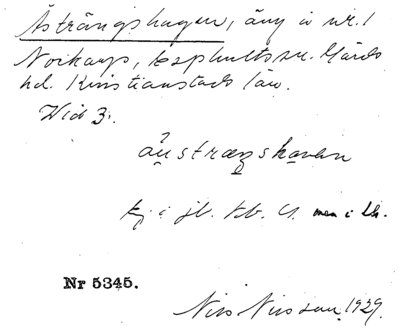 Åsträngshagen, äng i nr. 1
Norkarp, Esphults sn. Gärds
hd. Kristianstads län.
Wid 3.
åustræŋshavan
Ej i jb. kb. G. men i Lk.
Nr 5345.
Nils Nilsson. 1929.